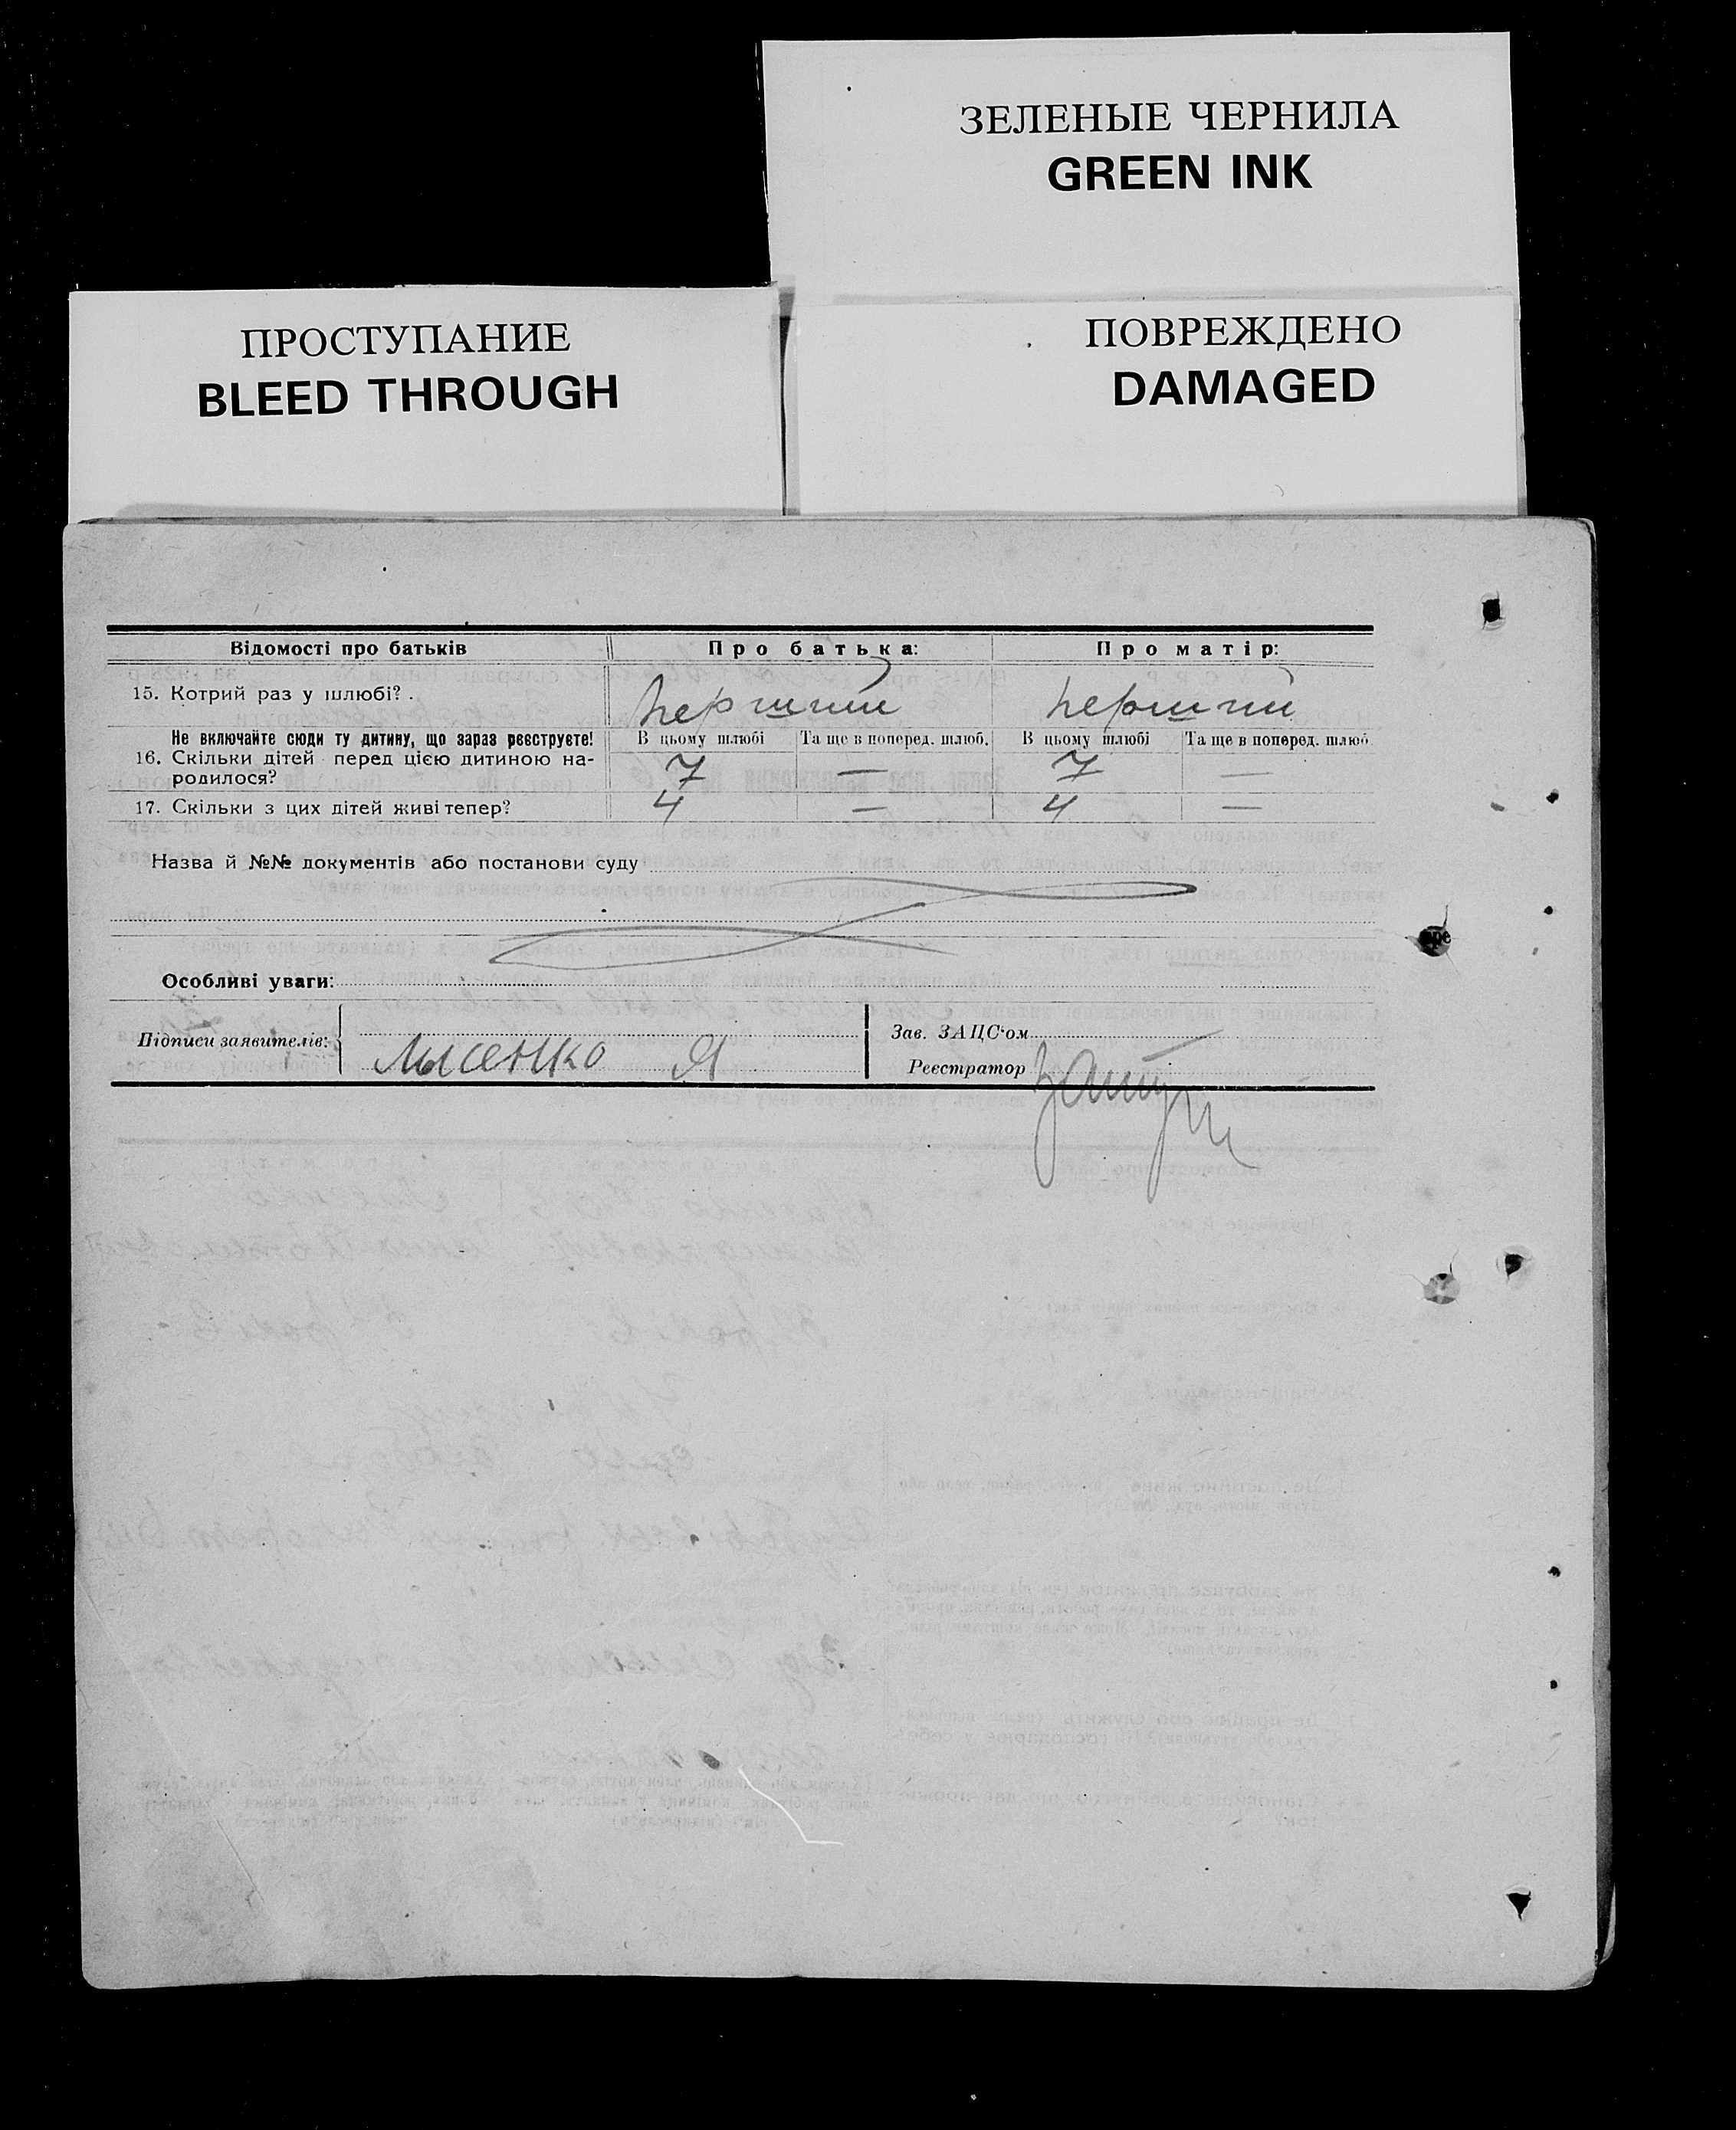 ЗЕЛЕНЫЕ ЧЕРНИЛА
GREEN INK
ПРОСТУПАНИЕ
BLEED THROUGH
ПОВРЕЖДЕНО
DAMAGED
Відомості про батьків Про батька: Про матір:
15. Котрий раз у шлюбі? . перший перший
Не включайте сюди ту дитину, що зараз реєструєте! В цьому шлюбі Та ще в поперед. шлюб. В цьому шлюбі Та ще в поперед. шлюб
16. Скільки дітей перед цією дитиною на-
родилося? 7 — 7 —
17. Скільки з цих дітей живі тепер? 4 — 4 —
Назва й №№ документів або постанови суду
Особливі уваги:
Зав. ЗАЦС'ом
Підписи заявителів: Лысенко Я
Реєстратор